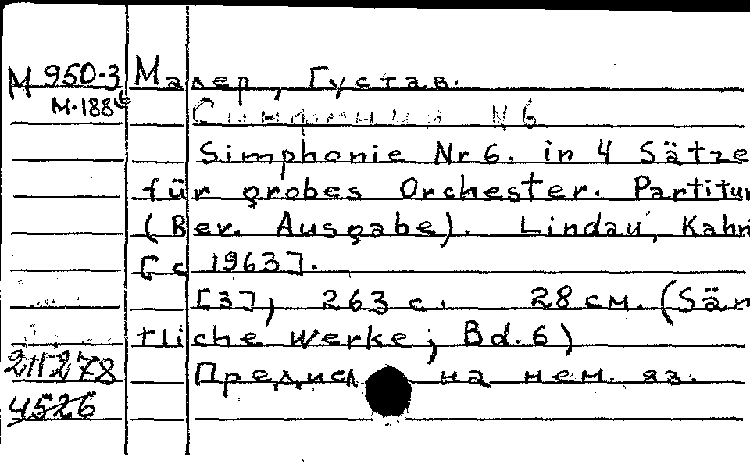 М 950-3 Малер, Густав.
М-188
Симфония N 6
Simphonie Nr 6. in 4 Sätze
für grobes Orchester. Partitur
(Rev. Ausgabe). Lindau, Kahn
[c 1963].
[3], 263 с. 28 см. (Säm
tliche Werke; Bd. 6)
211278 на нем. яз.
4526